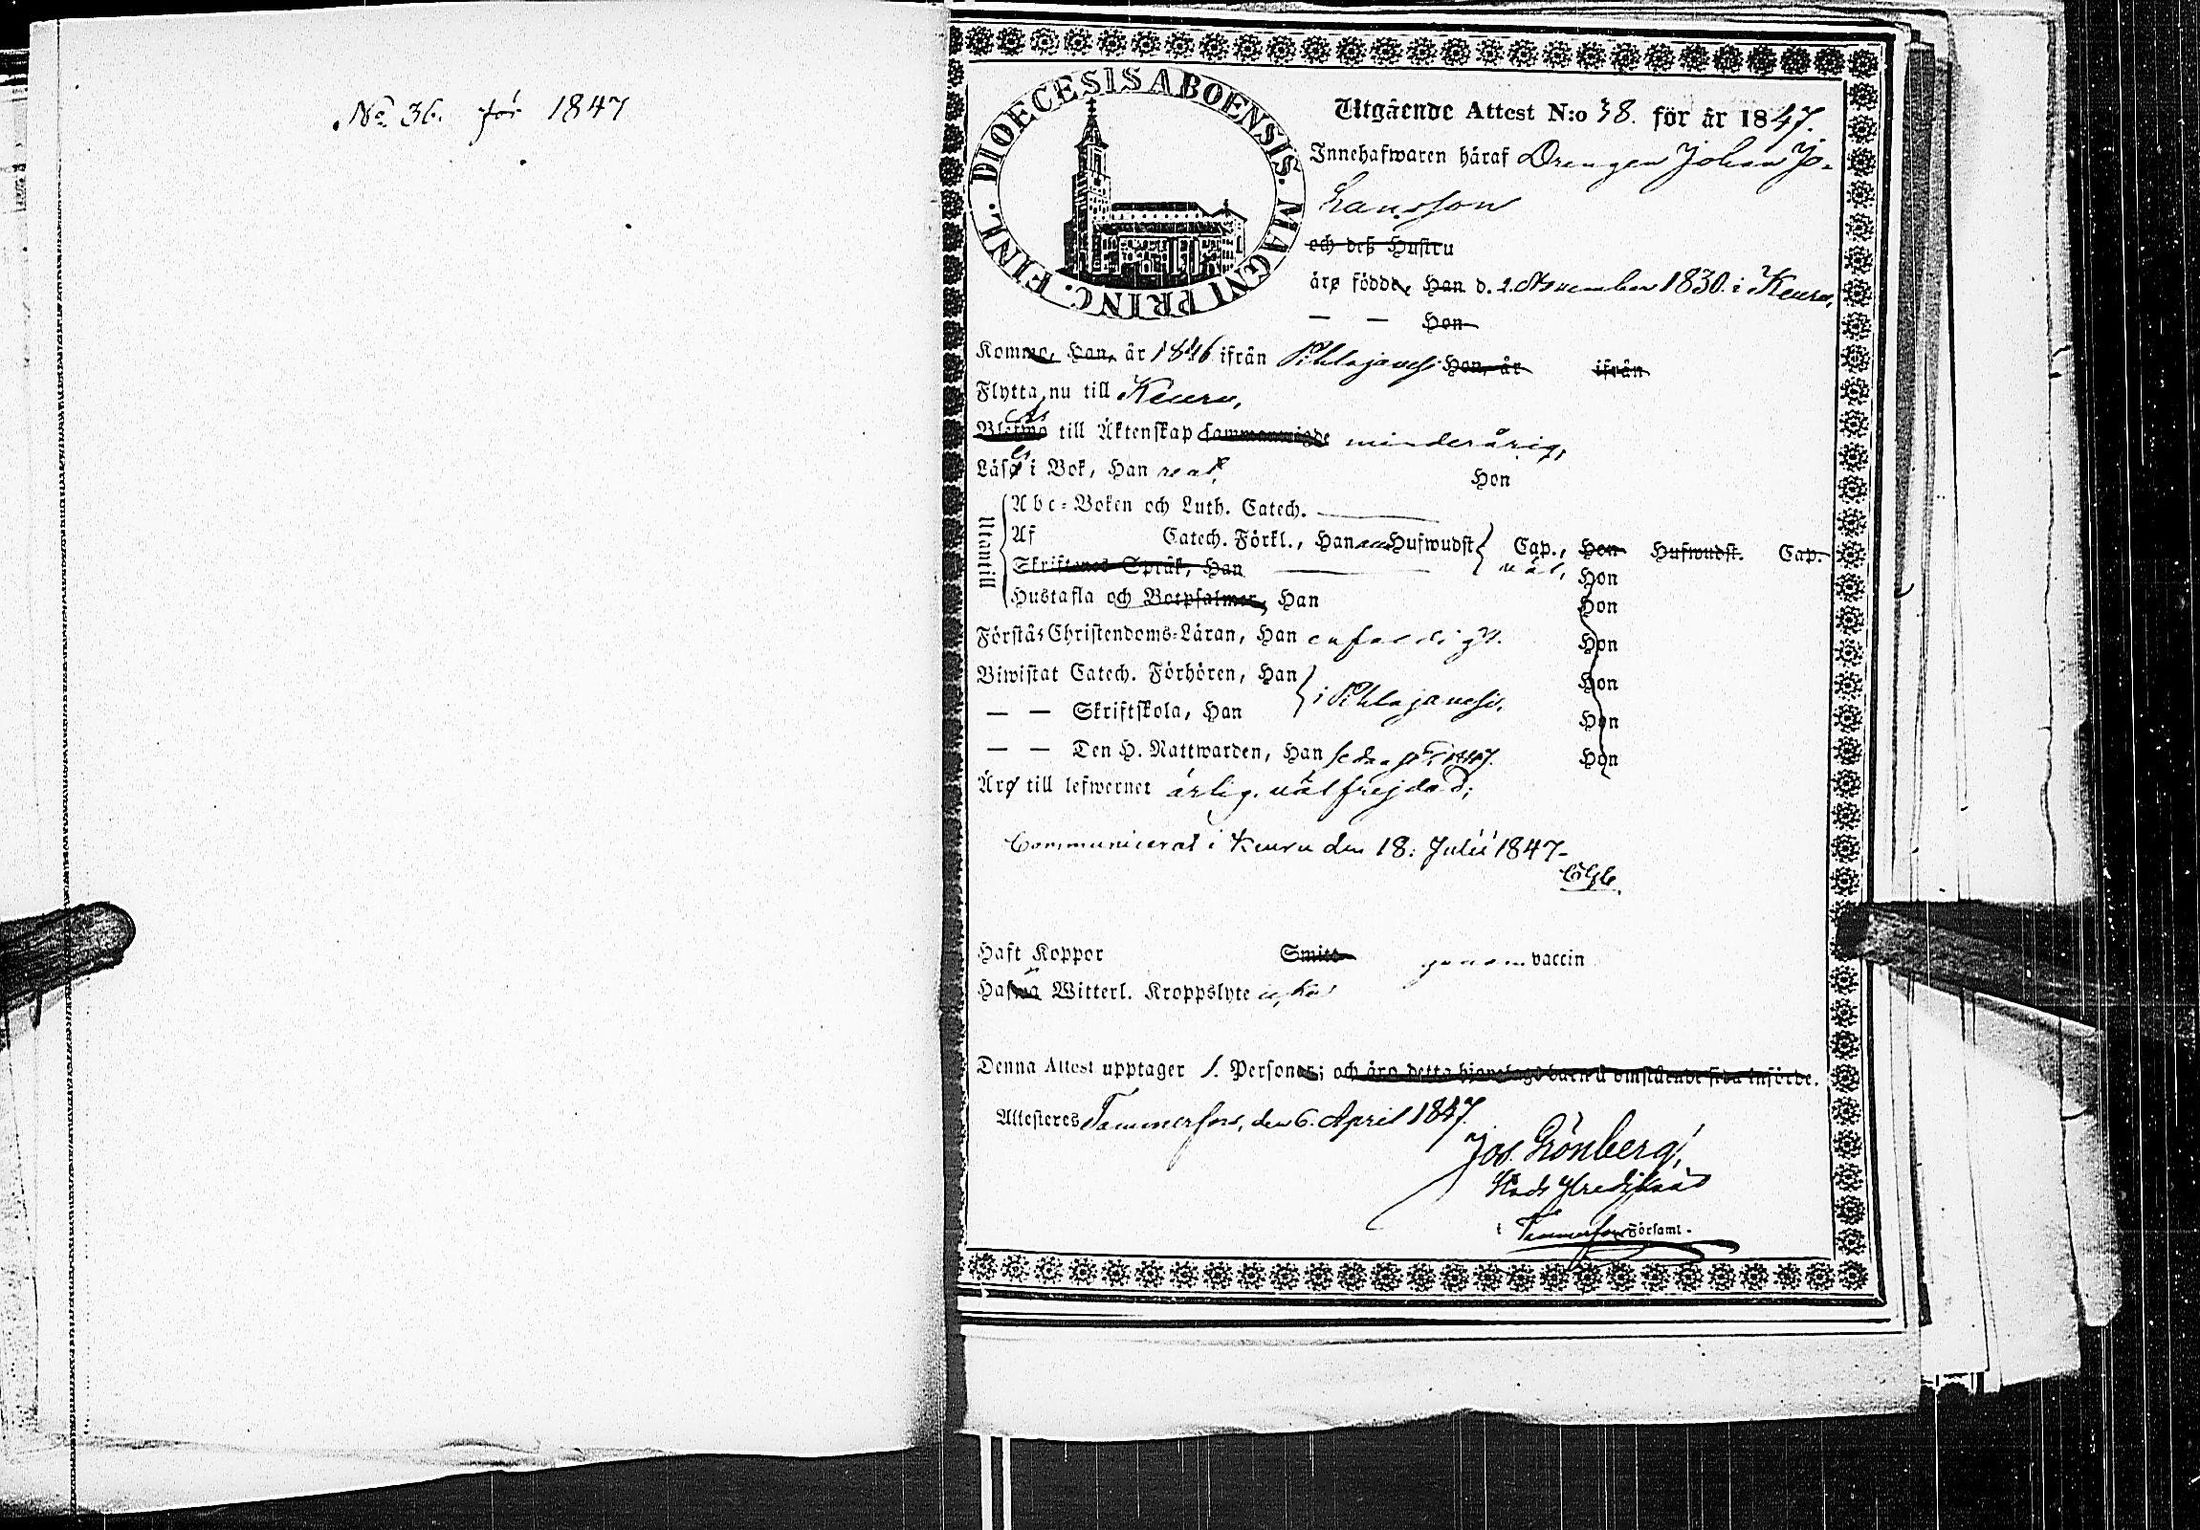 No 36. för 1847
DIOECESIS ABOENSIS. MAGNI PRINC. FINL.
Utgående Attest N:o 38. för år 1847.
Innehafwaren häraf Drengen Johan Jo-
hansson
och deß Hustru
äro födde, Han d. 2 November 1830. i Keuru,
— — Hon
Komne, Han, år 1846 ifrån Pihlajavesi Hon, år ifrån
Flytta nu till Keuru,
till Äktenskap sammanwigde minderårig,
Läsa i Bok, Han Hon
Utantill
Abc-Boken och Luth. Catech.
Af Catech. Förkl., Han Hufwudst. Cap., Hon Hufwudst. Cap.
Skriftenes Språk, Han väl, Hon
Hustafla och Botpsalmer, Han Hon
Förstås Christendoms-Läran, Han enfaldigt. Hon
Biwistat Catech. Förhören, Han Hon
— — Skriftskola, Han i Pihlajavesi. Hon
— — Den H. Nattwarden, Han 1847. Hon
Äro till lefwernet ärlig, väl frejdad;
Communicerat i Keuru den 18: Julii 1847-
Haft Koppor Smitt genom vaccin
Hafwa Witterl. Kroppslyte icke
Denna Attest upptager 1. Personer; och äro detta hjonelags barn å omstående sida införde.
Attesteres Tammerfors, den 6. April 1847.
Jos. Grönberg,
i Tammerfors Församl.